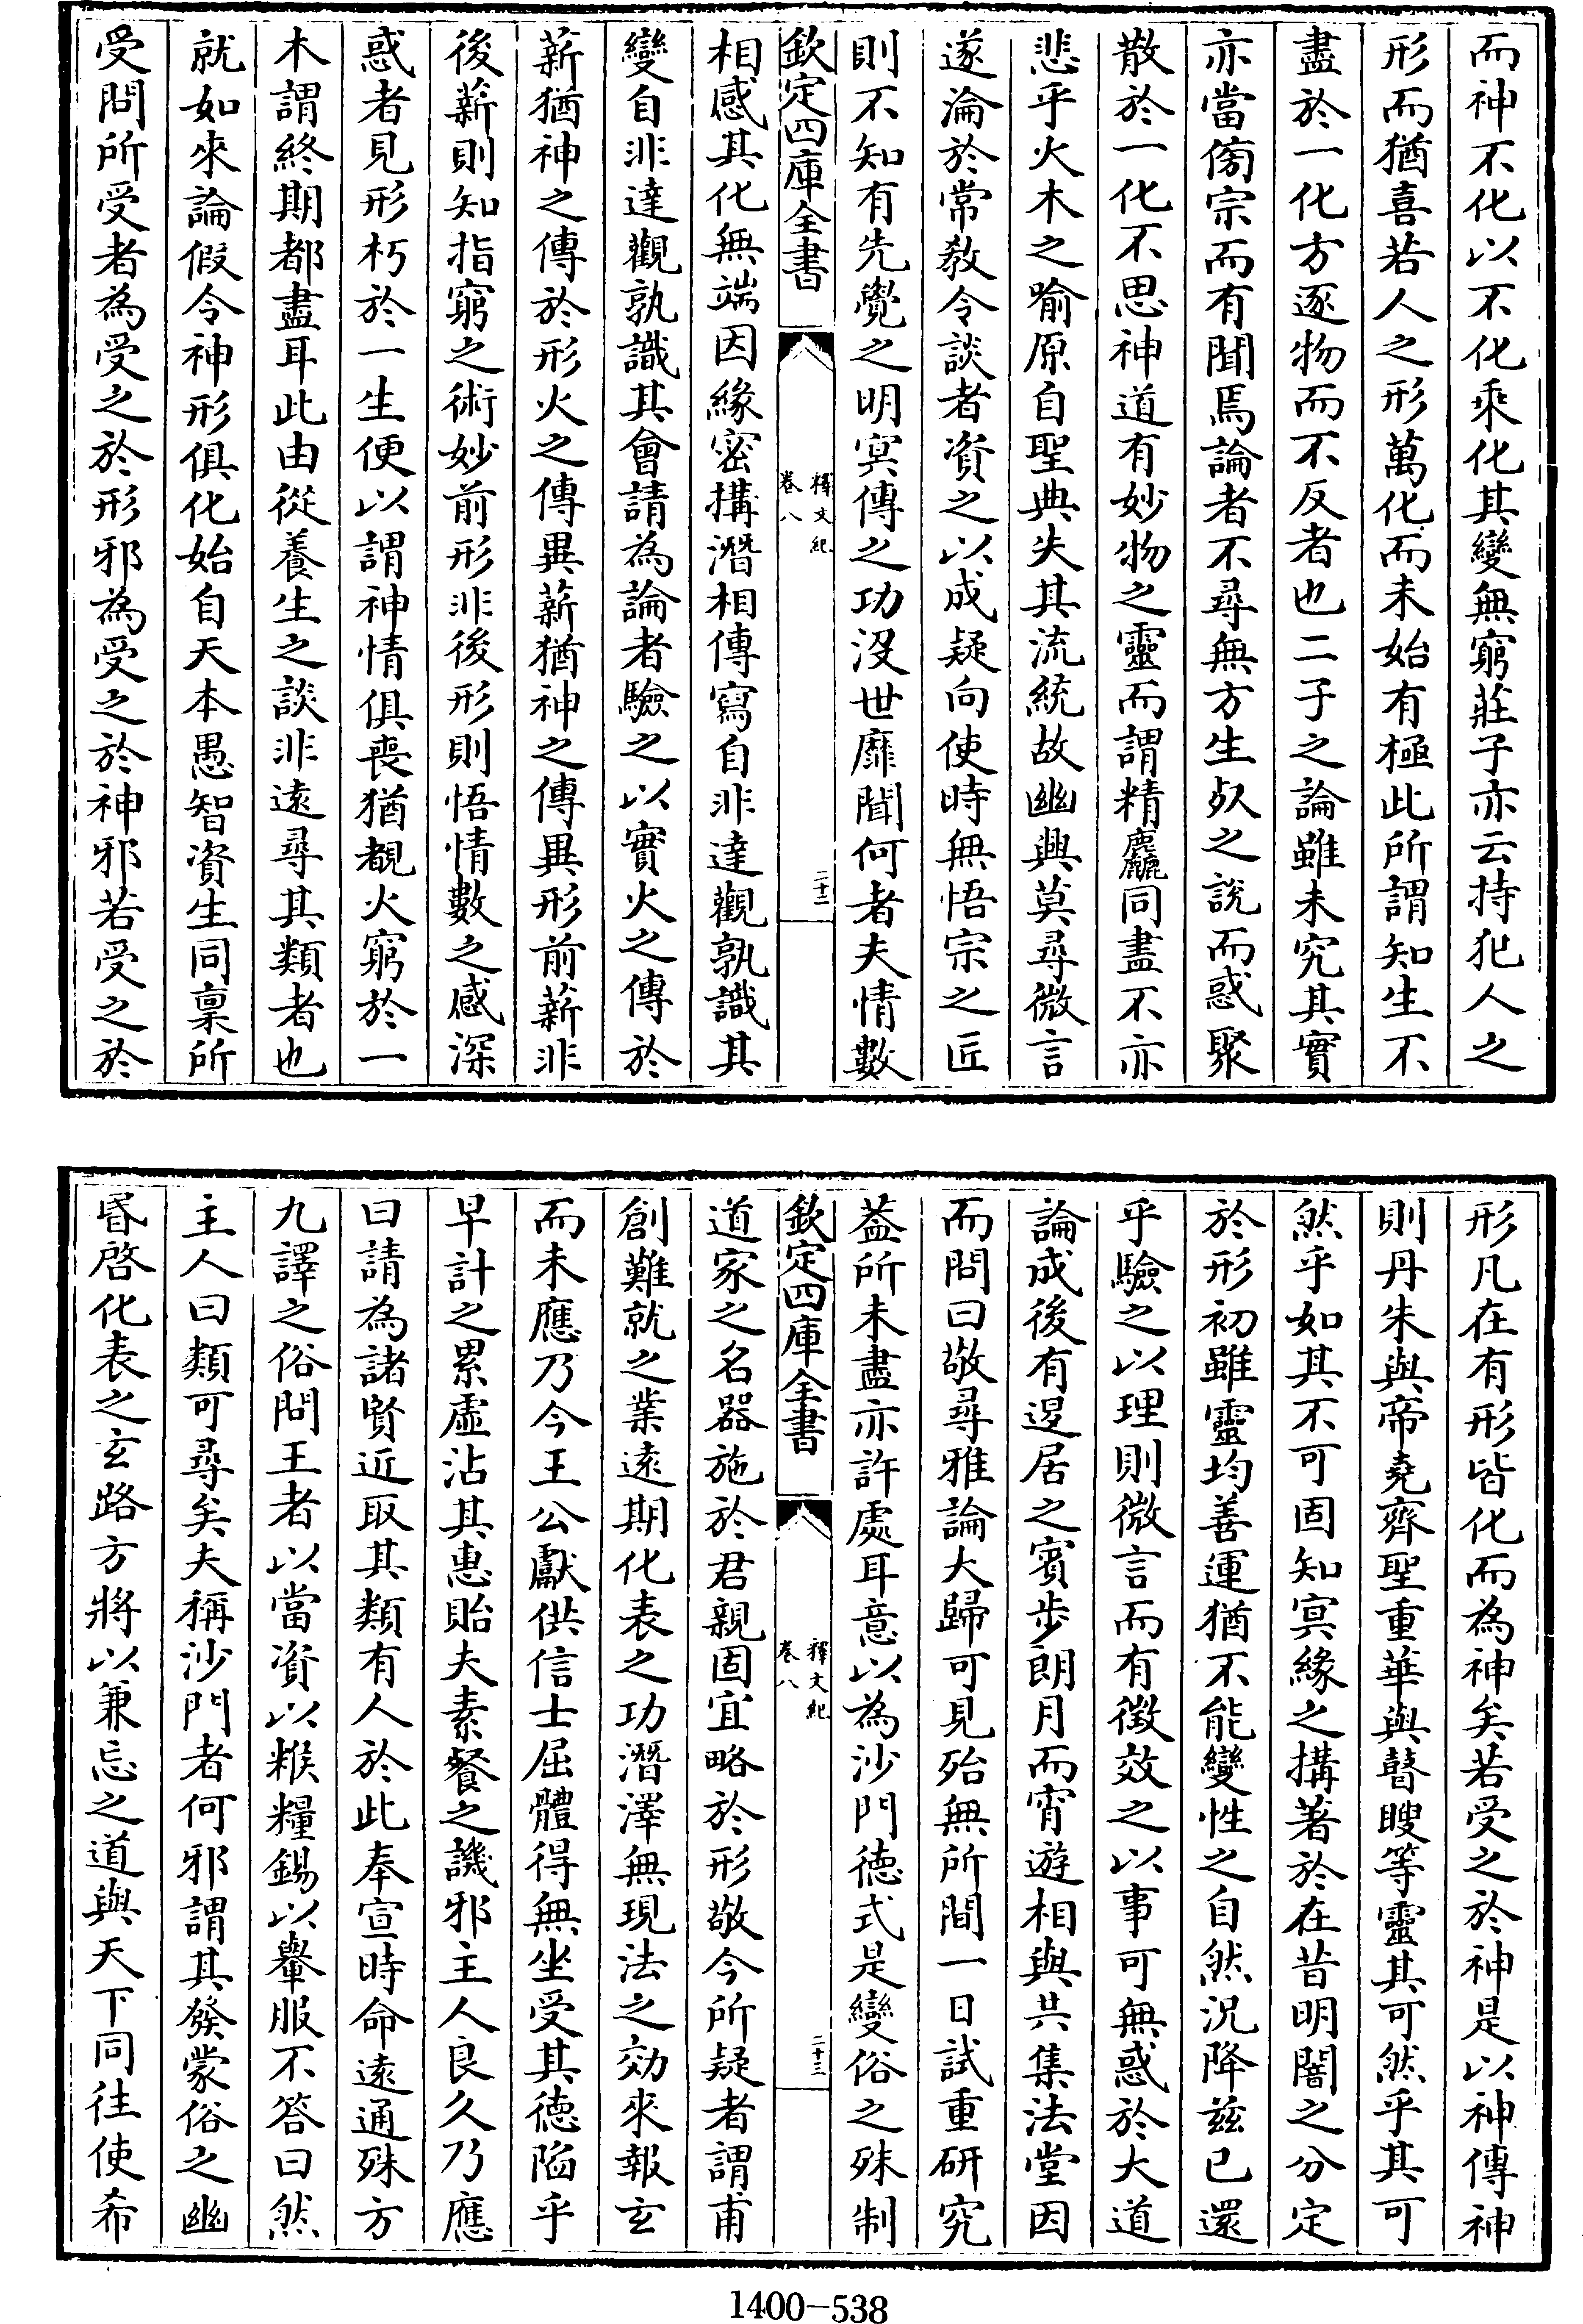 而神不化以不化乘化其變無窮莊子亦云持犯人之
形而猶喜若人之形萬化而未始有極此所謂知生不
盡於一化方逐物而不反者也二子之論雖未究其實
亦當傍宗而有聞焉論者不尋無方生死之說而惑聚
散於一化不思神道有妙物之靈而謂精麤同盡不亦
悲乎火木之喻原自聖典失其流統故幽興莫尋微言
遂淪於常教令談者資之以成疑向使時無悟宗之匠
則不知有先覺之明冥傳之功沒世靡聞何者夫情數
欽定四庫全書
釋文紀
卷八
二十二
相感其化無端因緣密搆潛相傳寫自非達觀孰識其
變自非達觀孰識其會請為論者驗之以實火之傳於
薪猶神之傳於形火之傳異薪猶神之傳異形前薪非
後薪則知指窮之術妙前形非後形則悟情數之感深
惑者見形朽於一生便以謂神情俱喪猶覩火窮於一
木謂終期都盡耳此由從養生之談非遠尋其類者也
就如來論假令神形俱化始自天本愚智資生同稟所
受問所受者為受之於形邪為受之於神邪若受之於
形凡在有形皆化而為神矣若受之於神是以神傳神
則丹朱與帝堯齊聖重華與瞽瞍等靈其可然乎其可
然乎如其不可固知冥緣之搆著於在昔明闇之分定
於形初雖靈均善運猶不能變性之自然況降茲已還
乎驗之以理則微言而有徵效之以事可無惑於大道
論成後有退居之賓步朗月而宵遊相與共集法堂因
而問曰敬尋雅論大歸可見殆無所間一日試重研究
葢所未盡亦許處耳意以為沙門德式是變俗之殊制
欽定四庫全書
釋文紀
卷八
二十三
道家之名器施於君親固宜略於形敬今所疑者謂甫
創難就之業遠期化表之功潛澤無現法之効來報玄
而未應乃今王公獻供信士屈體得無坐受其德陷乎
早計之累虛沾其惠貽夫素餐之譏邪主人良久乃應
曰請為諸賢近取其類有人於此奉宣時命遠通殊方
九譯之俗問王者以當資以糇糧錫以轝服不答曰然
主人曰類可尋矣夫稱沙門者何邪謂其發蒙俗之幽
昏啓化表之玄路方將以兼忘之道與天下同往使希
1400-538